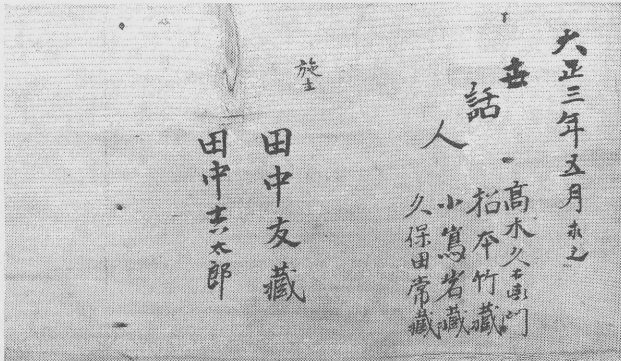 大正三年五月求之
世話人
髙木久右衛門
松本竹藏
小嶌岩藏
久保田常藏
施主
田中友藏
田中吉太郎